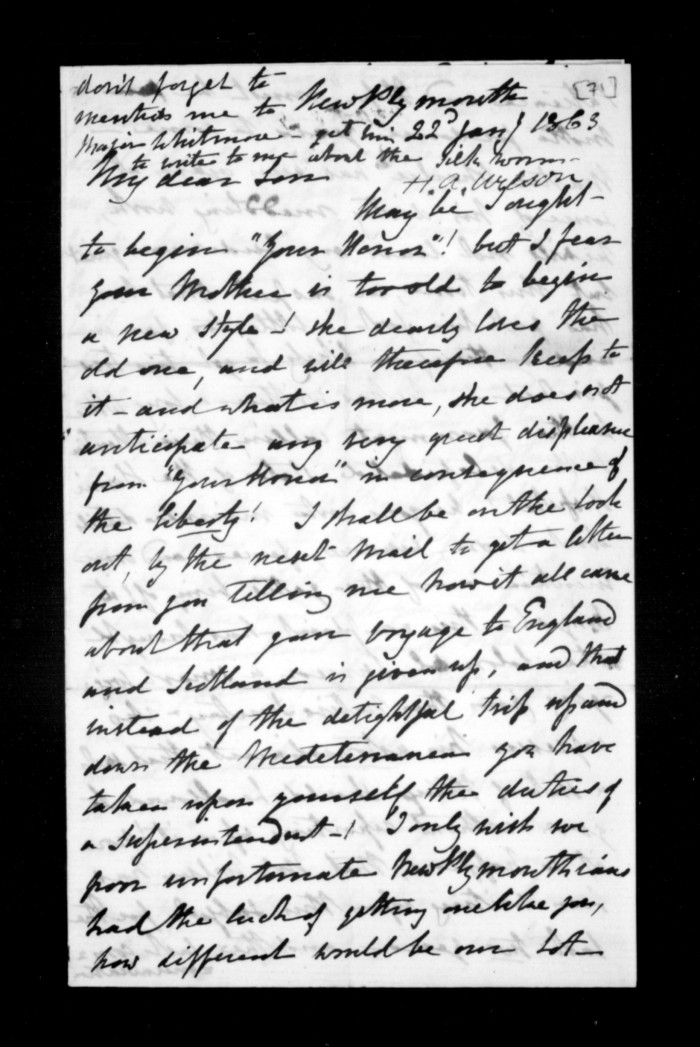 don't forget to
mention me to New Plymouth [7]
Major Whitmore - get him 22d Jany 1863
to write to me about the silk worms -
My dear Son H. A. Wilson
May be I ought
to begin "Your Honor"! but I fear
your Mother is too old to begin
a new style -! she dearly loves the
old one, and will therefore keep to
it - and what is more, she does not
anticipate any very great displeasure
from "Your Honor" in consequence of
the liberty! I shall be on the look
out, by the next mail to get a letter
from you telling me how it all came
about that your voyage to England
and Scotland is given up, and that
instead of the delightful trip up and
down the Mediterranean you have
taken upon yourself the duties of
a Superintendent -! I only wish we
poor unfortunate New Plymouthians
had the luck of getting one like you,
how different would be our lot -